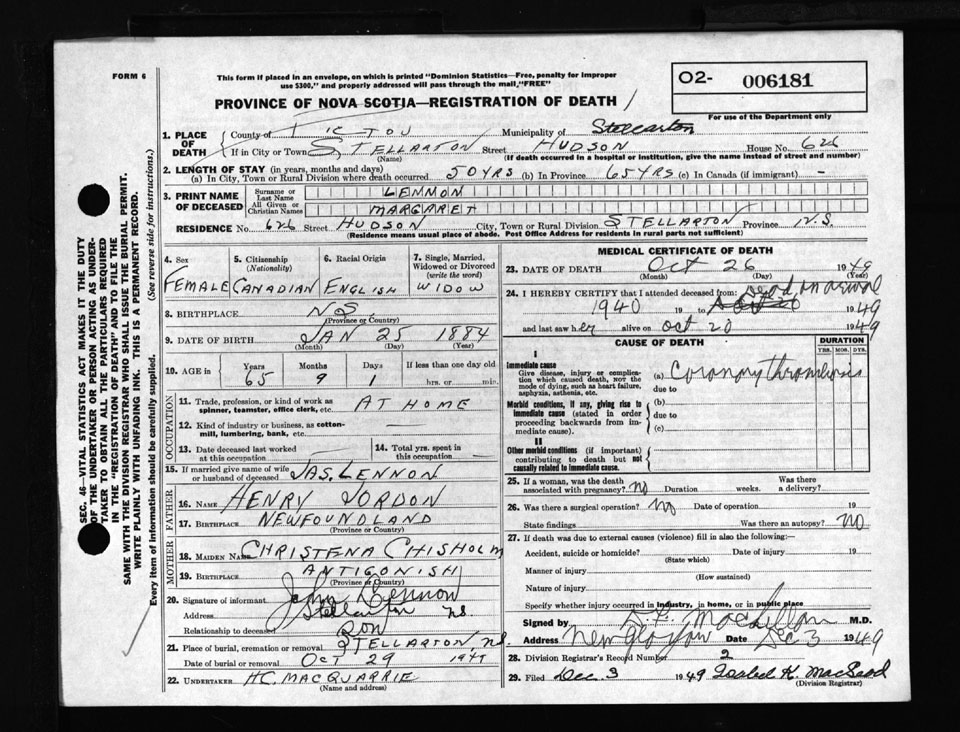 FORM 6
This form if placed in an envelope, on which is printed "Dominion Statistics—Free, penalty for improper
use $300," and properly addressed will pass through the mail, "FREE"
O2- 006181
PROVINCE OF NOVA SCOTIA—REGISTRATION OF DEATH
For use of the Department only
1. PLACE OF DEATH
County of PICTOU Municipality of Stellarton
If in City or Town STELLARTON Street HUDSON House No. 626
(Name) (If death occurred in a hospital or institution, give the name instead of street and number)
2. LENGTH OF STAY (in years, months and days)
(a) In City, Town or Rural Division where death occurred 50 YRS (b) In Province 65 YRS (c) In Canada (if immigrant) —
3. PRINT NAME OF DECEASED
Surname or Last Name LENNON
All Given or Christian Names MARGARET
RESIDENCE No. 626 Street HUDSON City, Town or Rural Division STELLARTON Province N.S.
(Residence means usual place of abode. Post Office Address for residents in rural parts not sufficient)
4. Sex
FEMALE
5. Citizenship
(Nationality)
CANADIAN
6. Racial Origin
ENGLISH
7. Single, Married,
Widowed or Divorced
(write the word)
WIDOW
8. BIRTHPLACE NS.
(Province or Country)
9. DATE OF BIRTH JAN 25 1884
(Month) (Day) (Year)
10. AGE in Years Months Days If less than one day old
65 9 1 hrs. or min.
OCCUPATION
11. Trade, profession, or kind of work as
spinner, teamster, office clerk, etc. AT HOME
12. Kind of industry or business, as cotton-
mill, lumbering, bank, etc. —
13. Date deceased last worked
at this occupation —
14. Total yrs. spent in
this occupation —
15. If married give name of wife
or husband of deceased JAS. LENNON
FATHER
16. NAME HENRY JORDON
17. BIRTHPLACE NEWFOUNDLAND
(Province or Country)
MOTHER
18. MAIDEN NAME CHRISTENA CHISHOLM
19. BIRTHPLACE ANTIGONISH
(Province or Country)
20. Signature of informant John Lennon
Address Stellarton NS
Relationship to deceased SON
21. Place of burial, cremation or removal STELLARTON, NS.
Date of burial or removal OCT 29 1949
22. UNDERTAKER H.C. MACQUARRIE
(Name and address)
MEDICAL CERTIFICATE OF DEATH
23. DATE OF DEATH Oct 26 1949
(Month) (Day) (Year)
24. I HEREBY CERTIFY that I attended deceased from: Dead on arrival
1940 19 to Oct 20 1949
and last saw her alive on Oct 20 1949
CAUSE OF DEATH
DURATION
YRS. MOS. DYS.
I
Immediate cause
Give disease, injury or complica-
tion which caused death, not the
mode of dying, such as heart failure,
asphyxia, asthenia, etc.
(a) Coronary thrombosis
due to
Morbid conditions, if any, giving rise to
immediate cause (stated in order
proceeding backwards from im-
mediate cause).
(b)
due to
(c)
II
Other morbid conditions (if important)
contributing to death but not
causally related to immediate cause.
25. If a woman, was the death
associated with pregnancy? no Duration weeks. Was there
a delivery?
26. Was there a surgical operation? No Date of operation 19
State findings Was there an autopsy? NO
27. If death was due to external causes (violence) fill in also the following:—
Accident, suicide or homicide? Date of injury 19
(State which)
Manner of injury
(How sustained)
Nature of injury
Specify whether injury occurred in industry, in home, or in public place
Signed by MacLellan M.D.
Address New Glasgow Date Dec 3 1949
28. Division Registrar's Record Number 2
29. Filed Dec. 3 1949 Isabel K. MacLeod
(Division Registrar)
SEC. 46—VITAL STATISTICS ACT MAKES IT THE DUTY
OF THE UNDERTAKER OR PERSON ACTING AS UNDER-
TAKER TO OBTAIN ALL THE PARTICULARS REQUIRED
IN THE "REGISTRATION OF DEATH" AND TO FILE THE
SAME WITH THE DIVISION REGISTRAR WHO SHALL ISSUE THE BURIAL PERMIT.
WRITE PLAINLY WITH UNFADING INK. THIS IS A PERMANENT RECORD.
Every item of information should be carefully supplied. (See reverse side for instructions.)